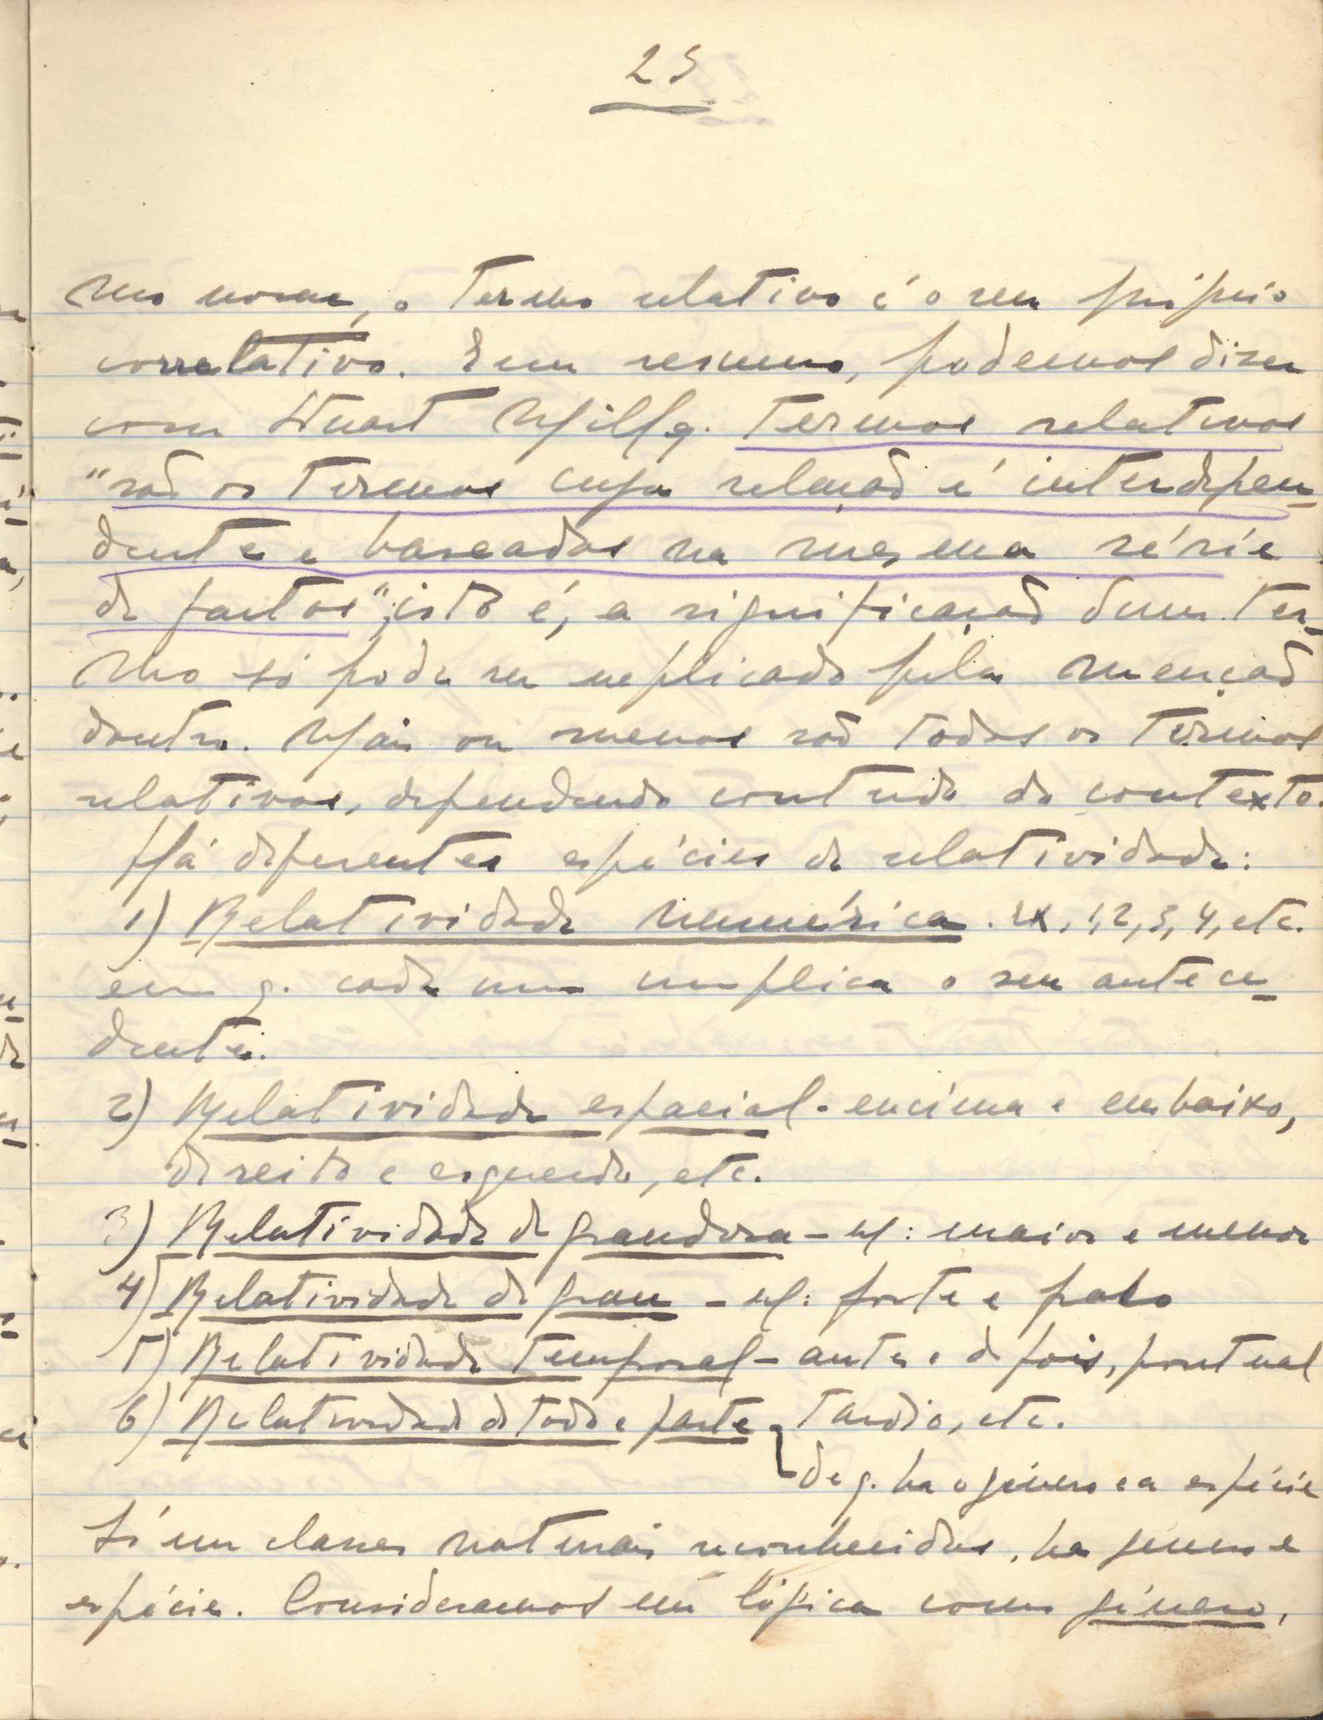 25
mo nome, o termo relativo é o seu próprio
correlativo. Em resumo, podemos dizer
com Stuart Mill q. termos relativos
"são os termos cuja relação é interdepen-
dente e baseados na mesma série
de factos"; isto é, a significação dum ter-
mo só pode ser explicado pela menção
doutro. Mais ou menos são todos os termos
relativos, dependendo contudo do contexto.
Há diferentes espécies de relatividade:
1) Relatividade numérica. 1, 2, 3, 4, etc.
em q. cada um implica o seu antece-
dente.
2) Relatividade espacial - encima e embaixo,
direito e esquerdo, etc.
3) Relatividade de grandeza - ex: maior e menor
4) Relatividade de grau - ex: forte e
5) Relatividade temporal - antes e depois, pontual
6) Relatividade de todo e parte tardio, etc.
de q. ha o género e a espécie
Só em classes naturais reconhecidas, ha genero e
espécie. Consideramos em lógica como género,